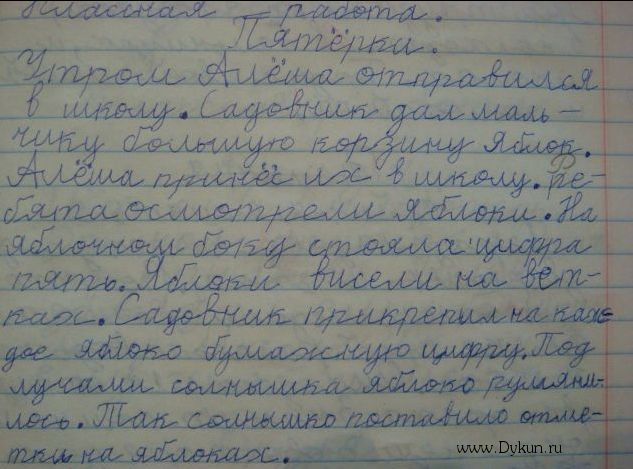 Классная работа.
Пятёрки.
Утром Алёша отправился
в школу. Садовник дал маль-
чику большую корзину яблок.
Алёша принёс их в школу. Ре-
бята осмотрели яблоки. На
яблочном боку стояла цифра
пять. Яблоки висели на вет-
ках. Садовник прикрепил на каж-
дое яблоко бумажную цифру. Под
лучами солнышка яблоко румяни-
лось. Так солнышко поставило отме-
тки на яблоках.
www.Dykun.ru